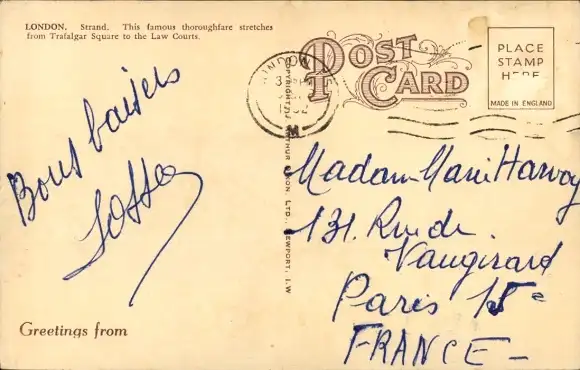 LONDON. Strand. This famous thoroughfare stretches
from Trafalgar Square to the Law Courts.
Bons baisers
Greetings from
POST
CARD
PLACE
STAMP
HERE
MADE IN ENGLAND
LONDON
COPYRIGHT, ARTHUR DIXON LTD., NEWPORT, I.W
Madam Marie Harvoy
131. Rue de
Vaugirard
Paris 15e
FRANCE -